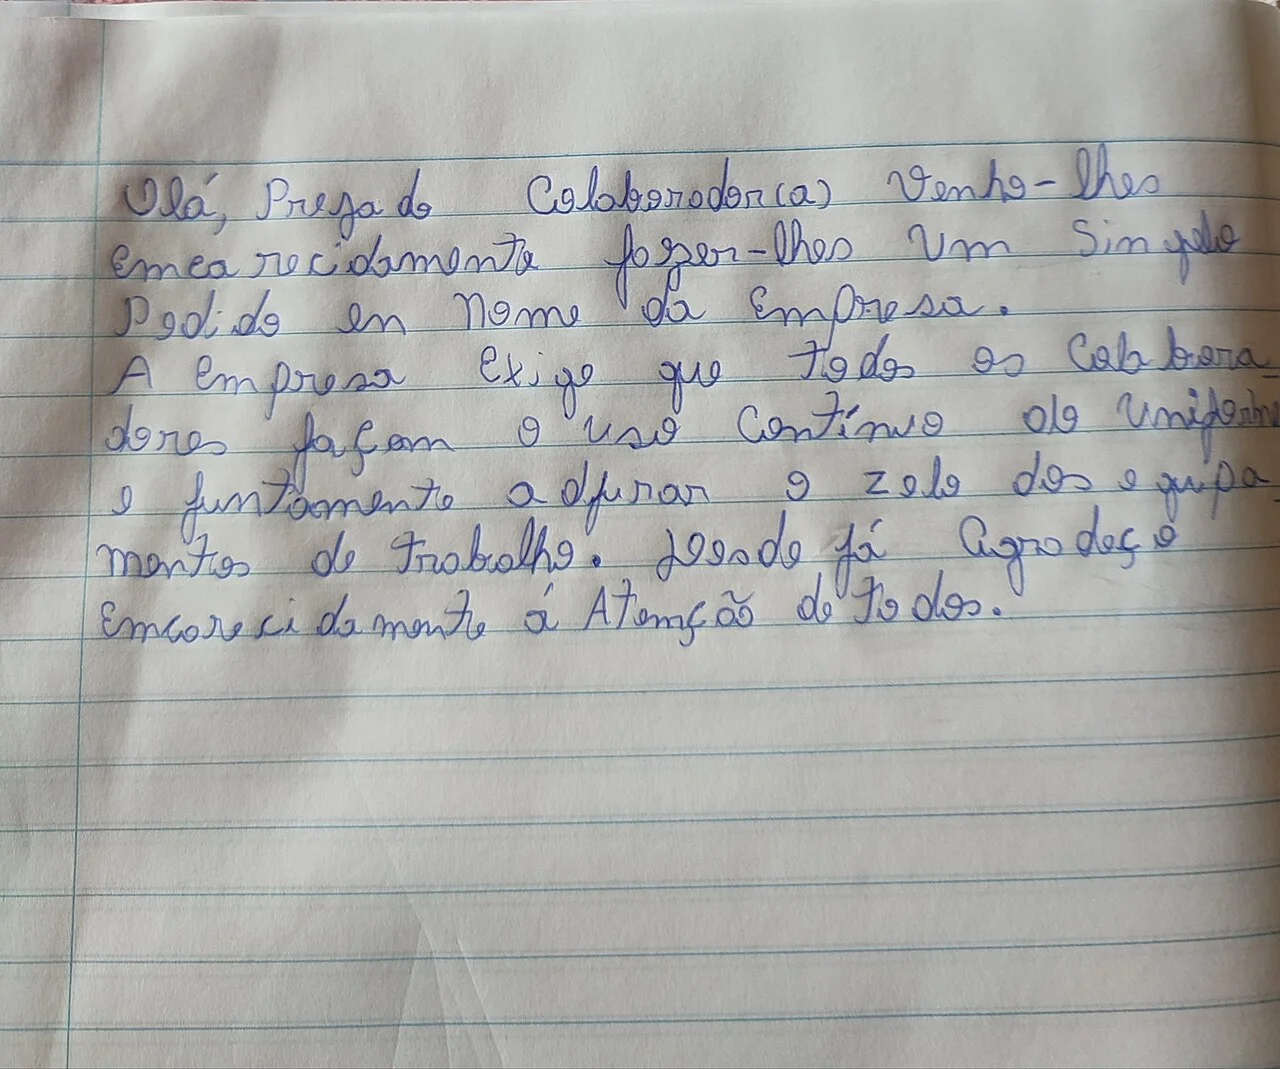 Olá, Prezado Colaborador(a) Venho-lhes
emcarecidamente fazer-lhes Um Singelo
Pedido em Nome da Empresa.
A empresa Exige que todos os Colabora_
dores façam o uso Contínuo do Uniforme
e juntamente adjurar o zelo dos equipa_
mentos de trabalho. Desde já Agradeço
Emcarecidamente á Atemção de todos.